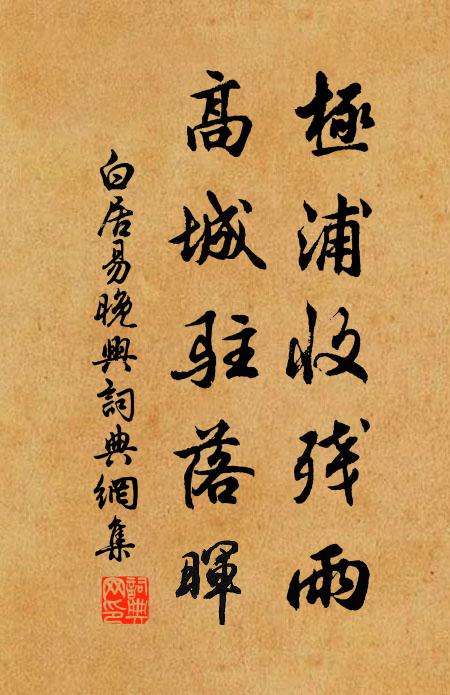 極浦收残雨
高城駐落暉
白居易晚興詞典網集
詞典网印